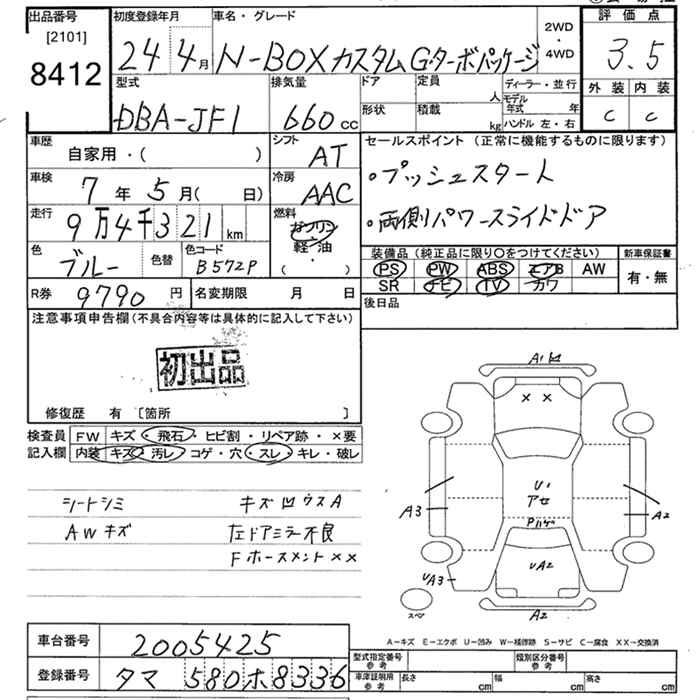 出品番号 [2101] 8412
初度登録年月 24 4月
車名・グレード N-BOXカスタム G・ターボパッケージ
2WD・4WD
評価点 3.5
外装 内装
C C
型式 DBA-JF1
排気量 660cc
ドア 形状
定員 人
積載 kg
ディーラー・並行
モデル年式 年
ハンドル 左・右
車歴 自家用・( )
シフト AT
セールスポイント (正常に機能するものに限ります)
・プッシュスタート
・両側パワースライドドア
車検 7年5月( 日)
冷房 AAC
走行 9万4千321km
燃料 ガソリン 軽・油 ( )
色 ブルー 色替
色コード B572P
装備品 (純正品に限り○をつけてください)
PS PW ABS エアB AW
SR ナビ TV カワ
新車保証書 有・無
R券 9790円
名変期限 月 日
後日品
注意事項申告欄(不具合内容等は具体的に記入して下さい)
初出品
修復歴 有 [箇所 ]
検査員記入欄
FW キズ・飛石・ヒビ割・リペア跡・×要
内装 キズ・汚レ・コゲ・穴・スレ・キレ・破レ
シートシミ キズ凹ウスA
AWキズ 左ドアミラー不良
Fホースメント××
A1凹
× ×
U1
アセ
A3
A2
UA2
UA3
スペア
A2
A−キズ E−エクボ U−凹み W−補修跡 S−サビ C−腐食 ××−交換済
車台番号 2005425
登録番号 タマ 580ホ8336
型式指定番号 参考
類別区分番号 参考
車庫証明用 参考 長さ cm 幅 cm 高さ cm